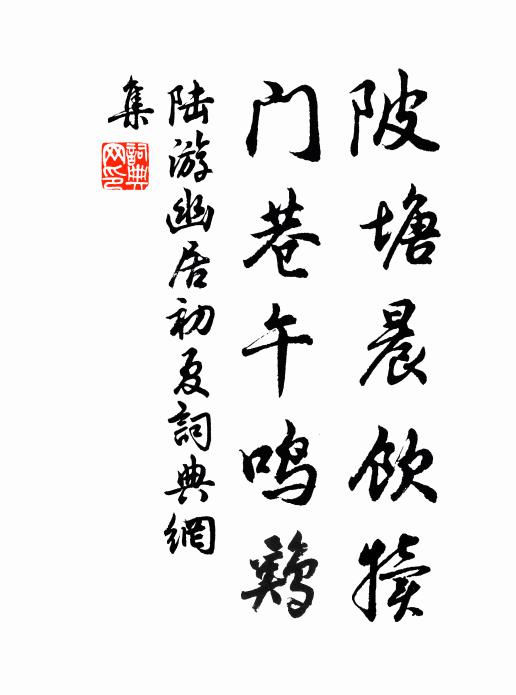 陂塘晨饮犊
门巷午鸣鷄
陆游幽居初夏詞典網
集
詞典网印